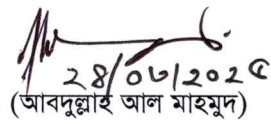 ২৪/০৩/২০২৫
(আবদুল্লাহ আল মাহমুদ)